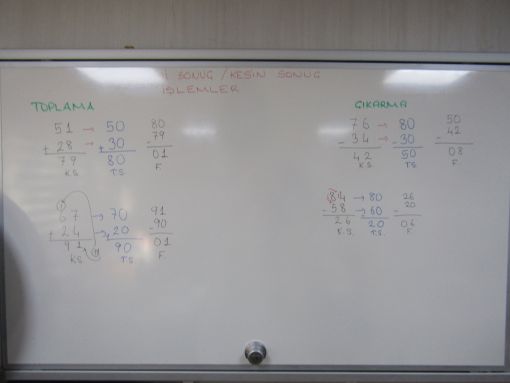 SONUÇ / KESİN SONUÇ
İŞLEMLER
TOPLAMA
51 → 50 80
+ 28 → + 30 - 79
79 80 01
K.S. T.S. F.
1
67 → 70 91
+ 24 → + 20 - 90
91 90 01
K.S. T.S. F.
ÇIKARMA
76 → 80 50
- 34 → - 30 - 42
42 50 08
K.S. T.S. F.
84 → 80 26
- 58 → - 60 - 20
26 20 06
K.S. T.S. F.